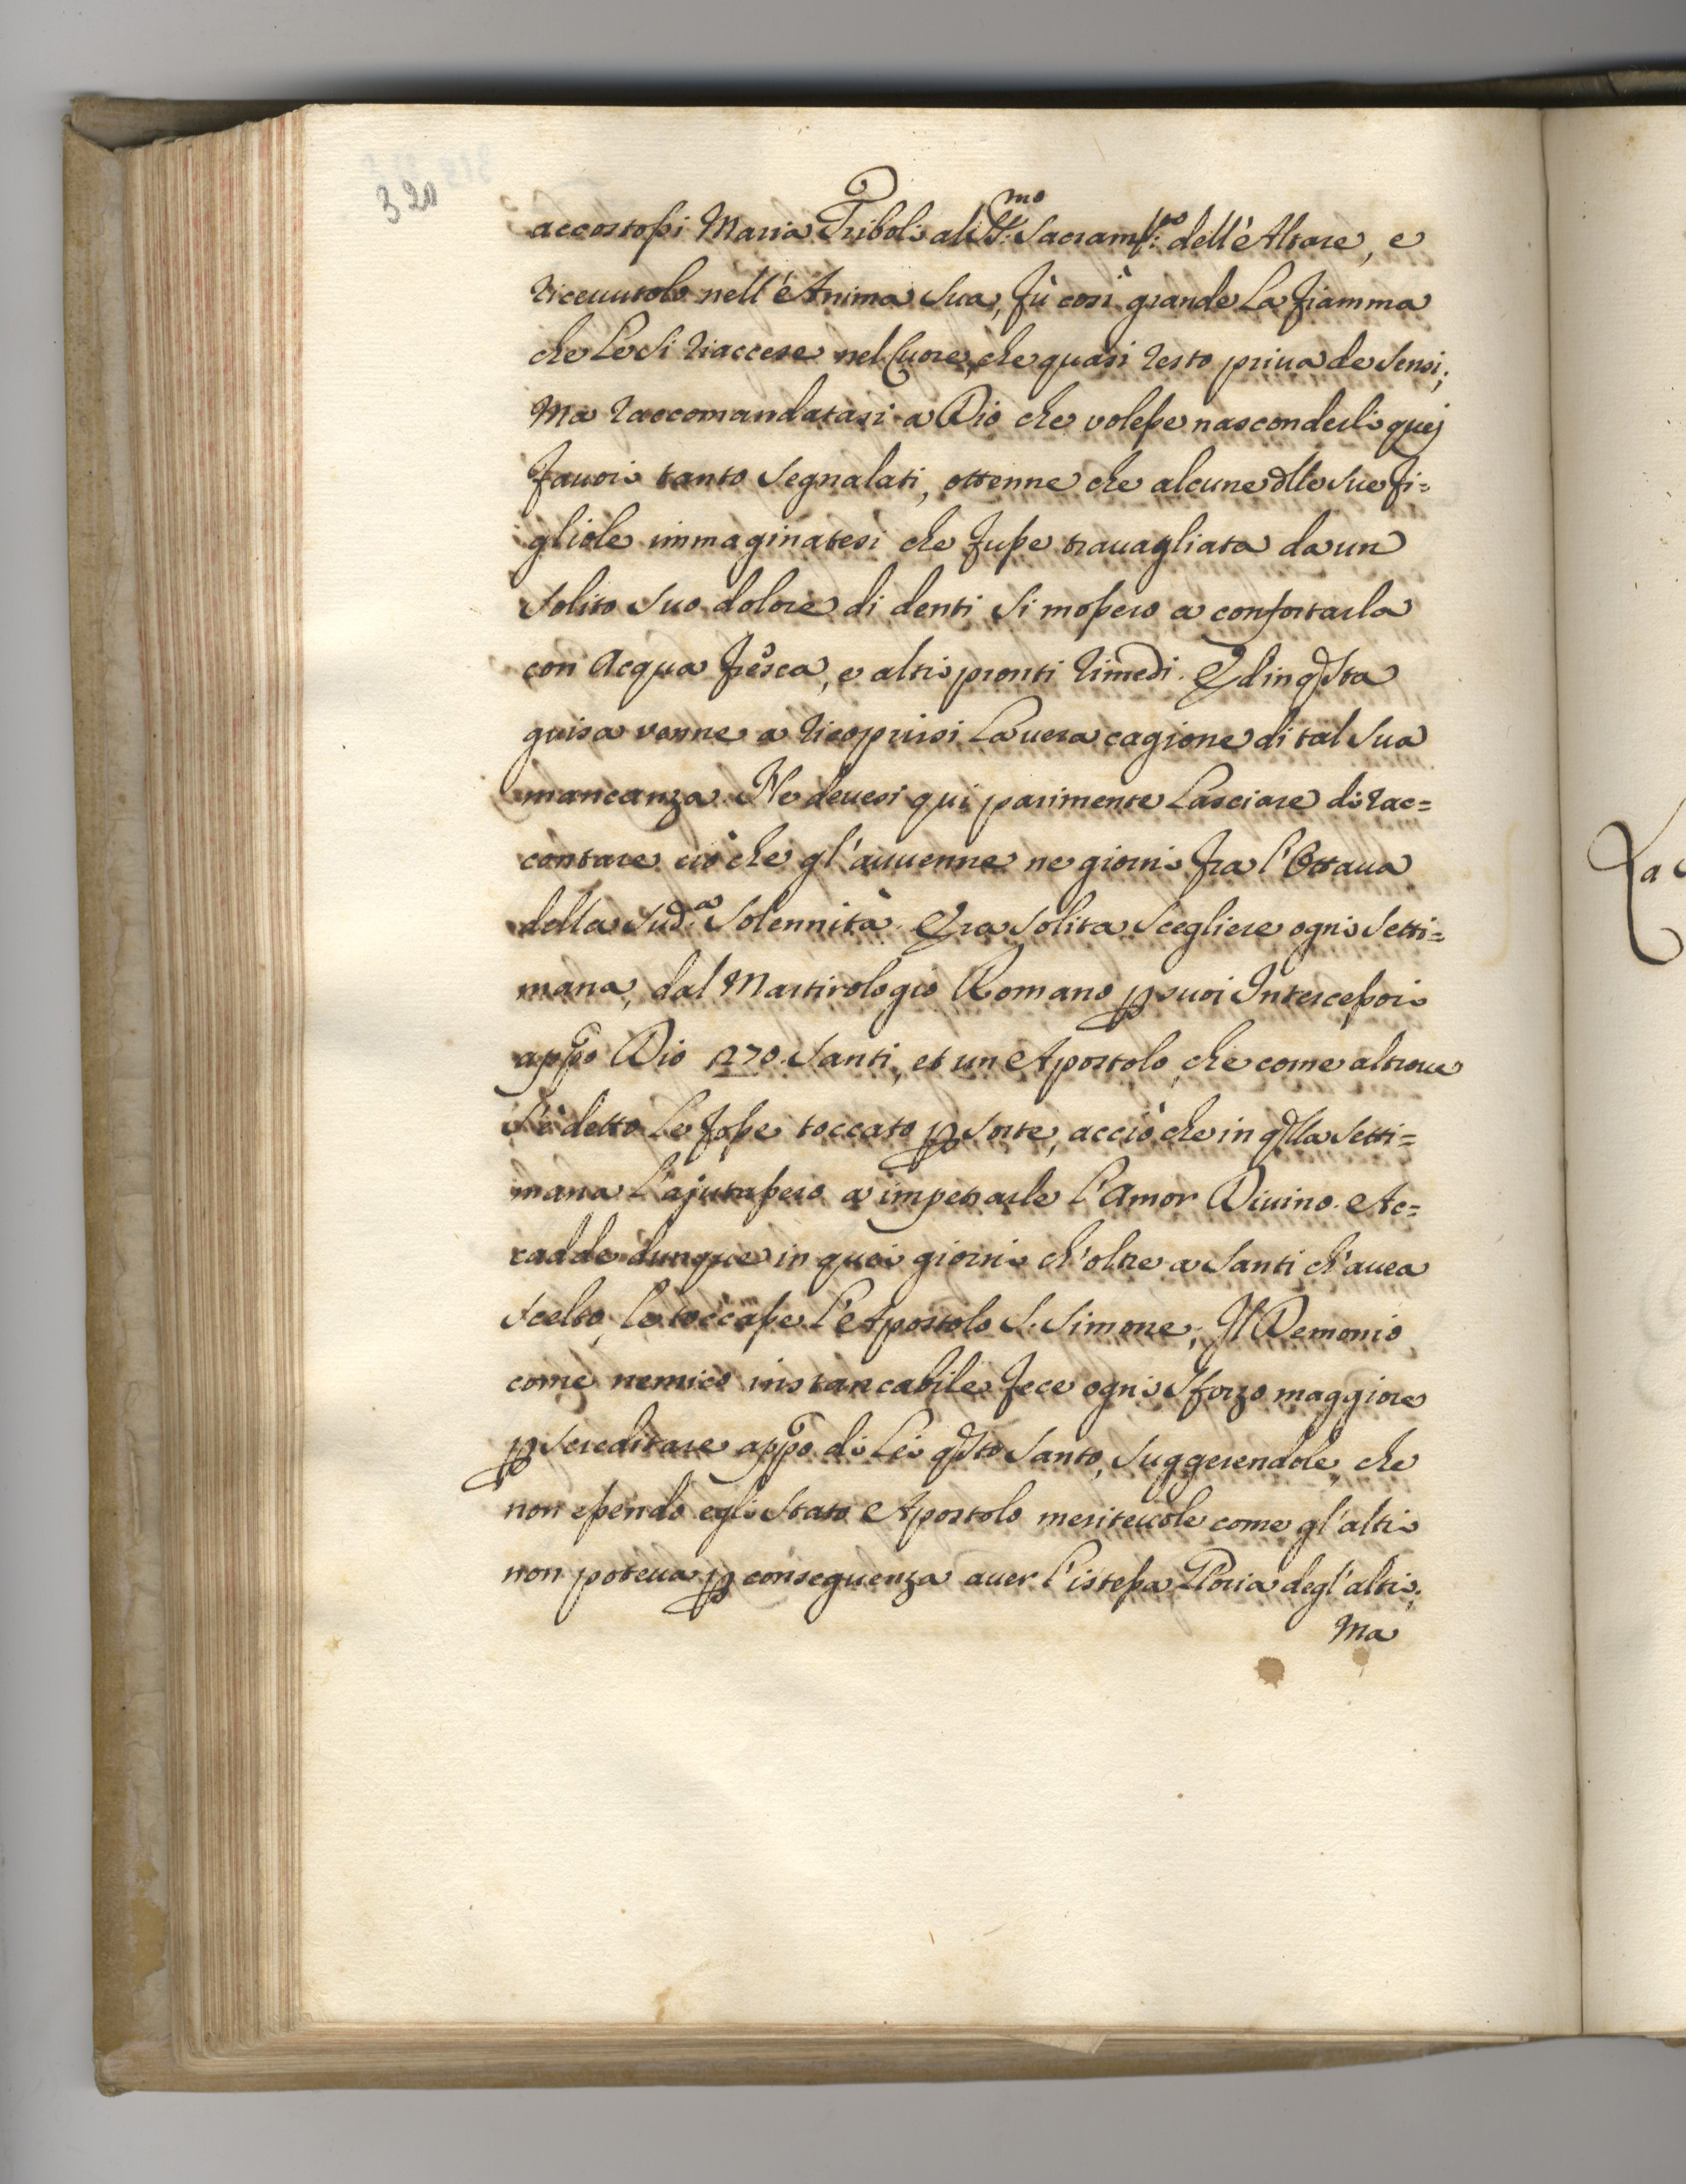 320
accostossi Maria Triboli al SS.mo Sacram.to dell'Altare, e
riceuutolo nell'Anima sua, fù così grande la fiamma
che le si riaccese nel Cuore, che quasi resto priua de sensi;
Ma raccomandatasi a Dio che volesse nasconderli quej
fauori tanto segnalati, ottenne che alcune dlle sue fi=
gliole immaginatesi che fusse trauagliata da un
solito suo dolore di denti si mossero a confortarla
con Acqua fresca, e altri pronti rimedi. Ed in qsta
guisa venne a ricoprirsi la uera cagione di tal sua
mancanza. Ne deuesi qui parimente lasciare di rac=
contare ciò che gl'auuenne ne giorni fra l'Ottaua
della sud.a Solennità. Era solita scegliere ogni setti=
mana, dal Martirologio Romano p suoi Intercessori
appo Dio 270. Santi, et un Apostolo, che come altroue
s'è detto le fosse toccato p sorte, acciò che in qlla setti=
mana l'ajutassero a impetrarle l'Amor Diuino. Ac=
cadde dunque in quei giorni ch'oltre a Santi ch'auea
scelto, le toccasse l'Apostolo S. Simone; Il Demonio
come nemico instancabile fece ogni sforzo maggiore
p screditare appo di lei qsto Santo, suggerendole, che
non essendo egli stato Apostolo meriteuole come gl'altri
non poteua p conseguenza auer l'istessa Gloria degl'altri;
Ma
La